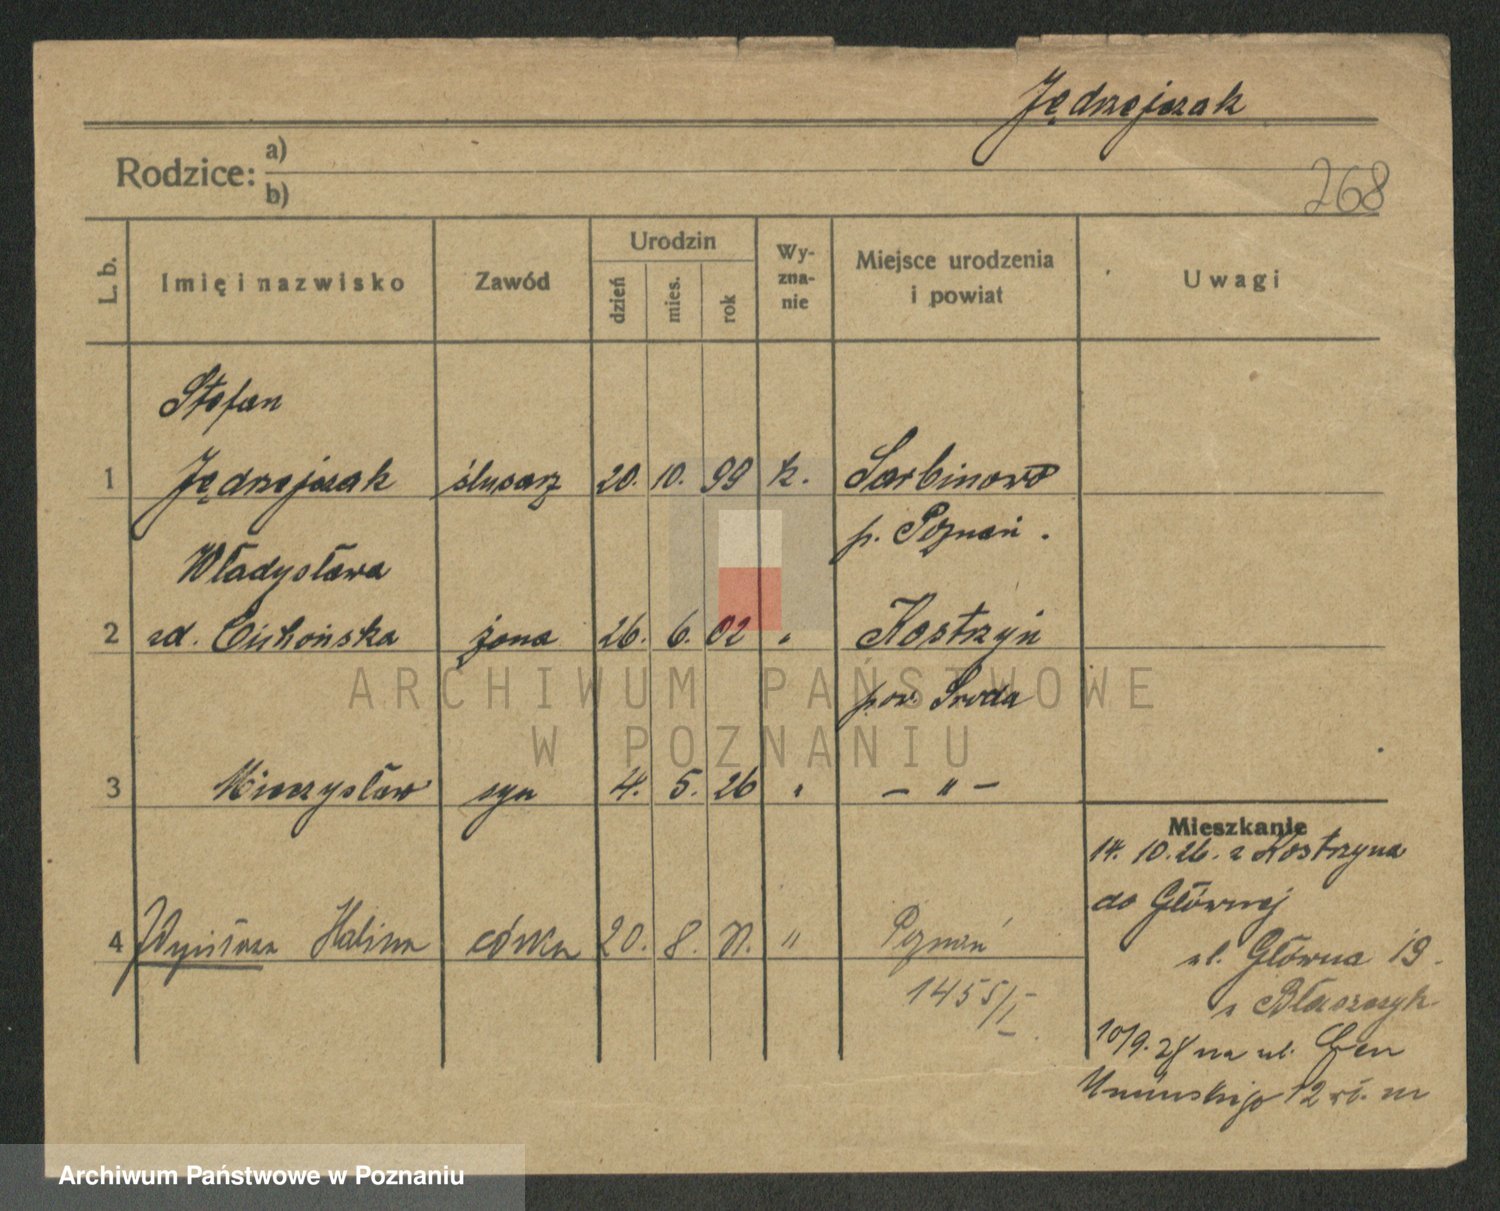 Jędrzejczak
Rodzice: a)
b)
268
L. b.
Imię i nazwisko
Zawód
Urodzin
dzień
mies.
rok
Wy-
zna-
nie
Miejsce urodzenia
i powiat
Uwagi
Stefan
1 Jędrzejczak ślusarz 20. 10. 99 k. Sarbinowo
p. Poznań.
Władysława
2 zd. Cichońska żona 26. 6. 02 " Kostrzyn
pow. Środa
3 Mieczysław syn 4. 5. 26 " — " —
4 Halina córka 20. 8. " Poznań
1455/I
Mieszkanie
14. 10. 26. z Kostrzyna
do Głównej
ul. Główna 19.
Błaszczyk
10/9. 28 na ul. Gen
Umińskiego 12
ARCHIWUM PAŃSTWOWE
W POZNANIU
Archiwum Państwowe w Poznaniu